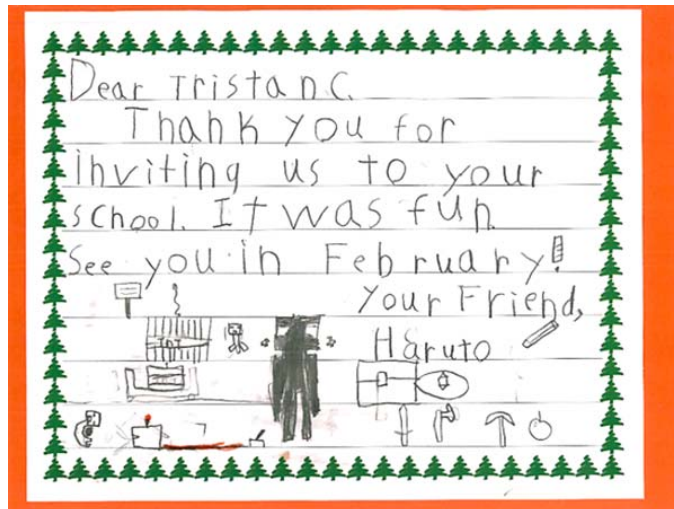 Dear Tristan C.
Thank you for
inviting us to your
school. It was fun.
See you in February!
Your Friend,
Haruto
TNT